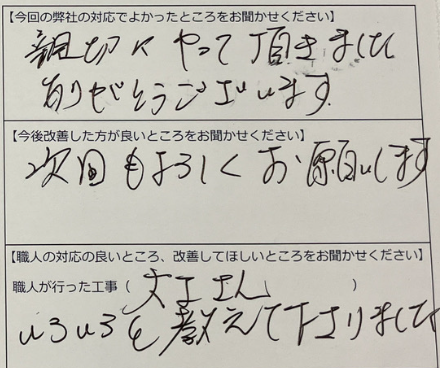 【今回の弊社の対応でよかったところをお聞かせください】
親切にやって頂きました
ありがとうございます
【今後改善した方が良いところをお聞かせください】
次回もよろしくお願いします
【職人の対応の良いところ、改善してほしいところをお聞かせください】
職人が行った工事（大工さん）
いろいろと教えて下さりました